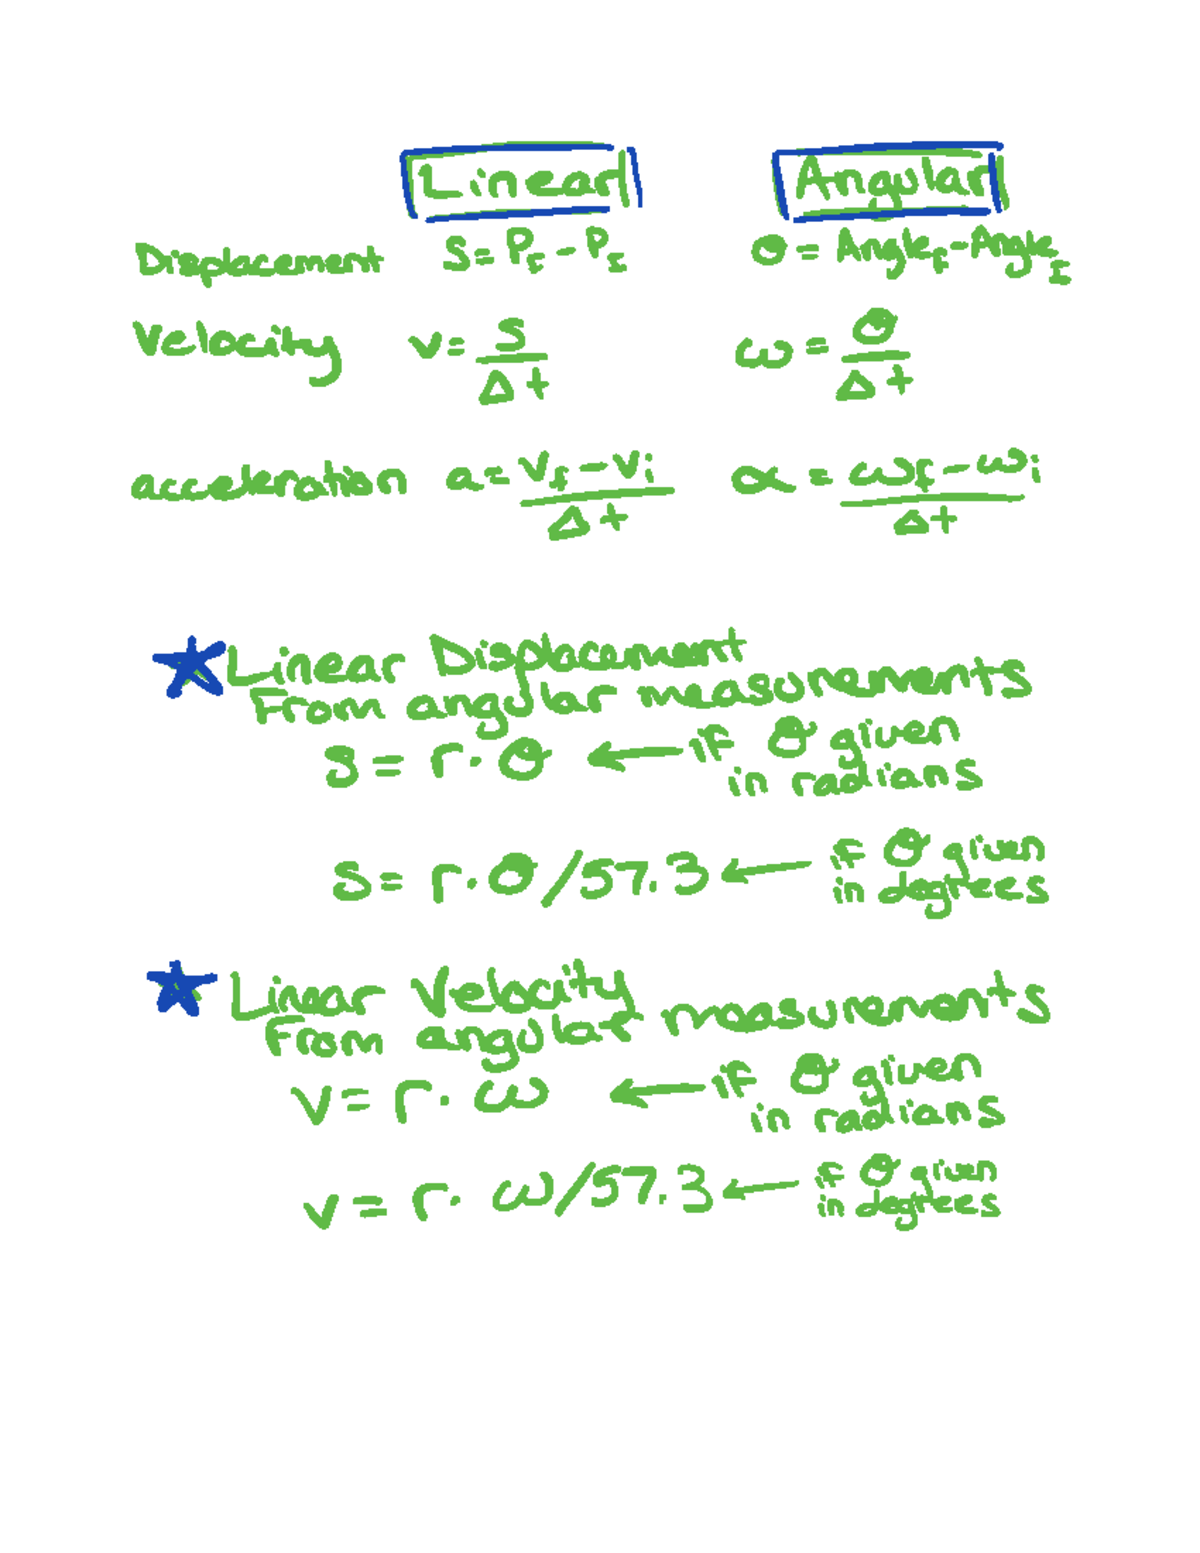 Linear Angular
Displacement S = P_F - P_I θ = Angle_f - Angle_I
Velocity v = S/Δt ω = θ/Δt
acceleration a = (v_f - v_i)/Δt α = (ω_f - ω_i)/Δt
★ Linear Displacement
From angular measurements
S = r·θ ← if θ given
in radians
S = r·θ/57.3 ← if θ given
in degrees
★ Linear Velocity
From angular measurements
v = r·ω ← if θ given
in radians
v = r·ω/57.3 ← if θ given
in degrees